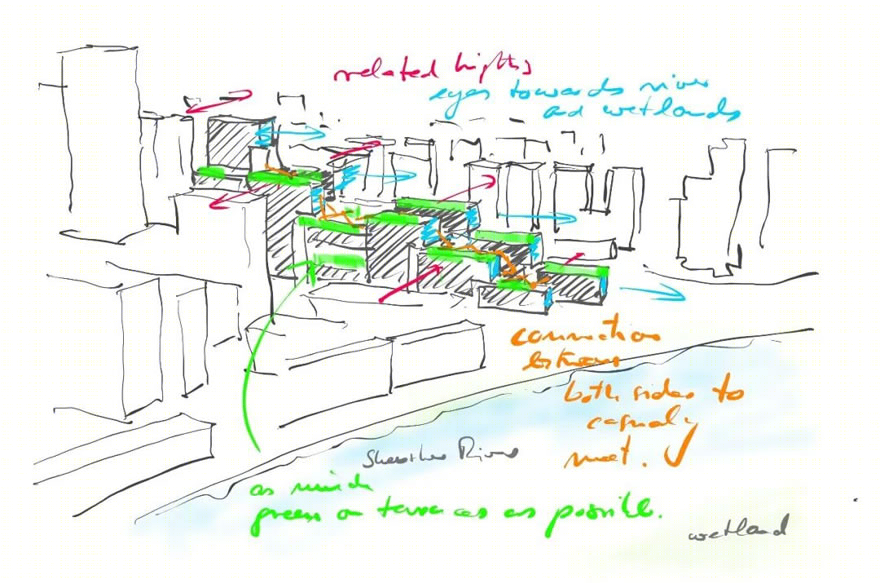 related highths
eyes towards river
and wetlands
connection
between
both sides to
casualy
meet.
Shenzhen River
as much
green on terraces as possible.
wetland